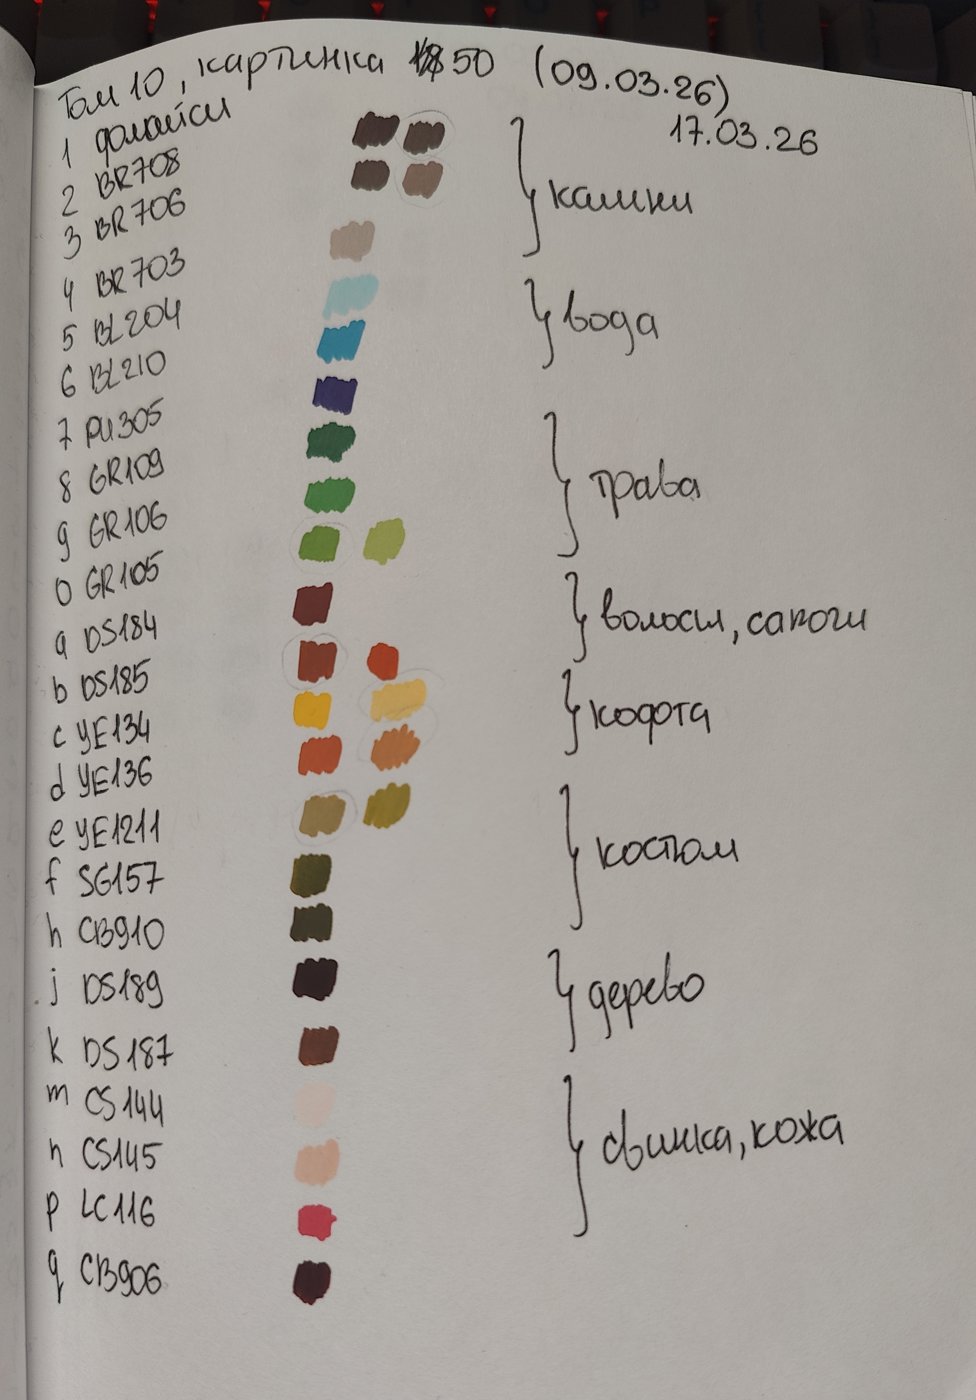 Том 10, картинка 50 (09.03.26)
17.03.26
1
2 BR708
3 BR706
4 BR703
5 BL204
6 BL210
7 PU305
8 GR109
9 GR106
0 GR105
a DS184
b DS185
c YE134
d YE136
e YE1211
f SG157
h CB910
j DS189
k DS187
m CS144
n CS145
p LC116
q CB906
камни
вода
трава
волосы, сапоги
кофта
костюм
дерево
свинка, кожа